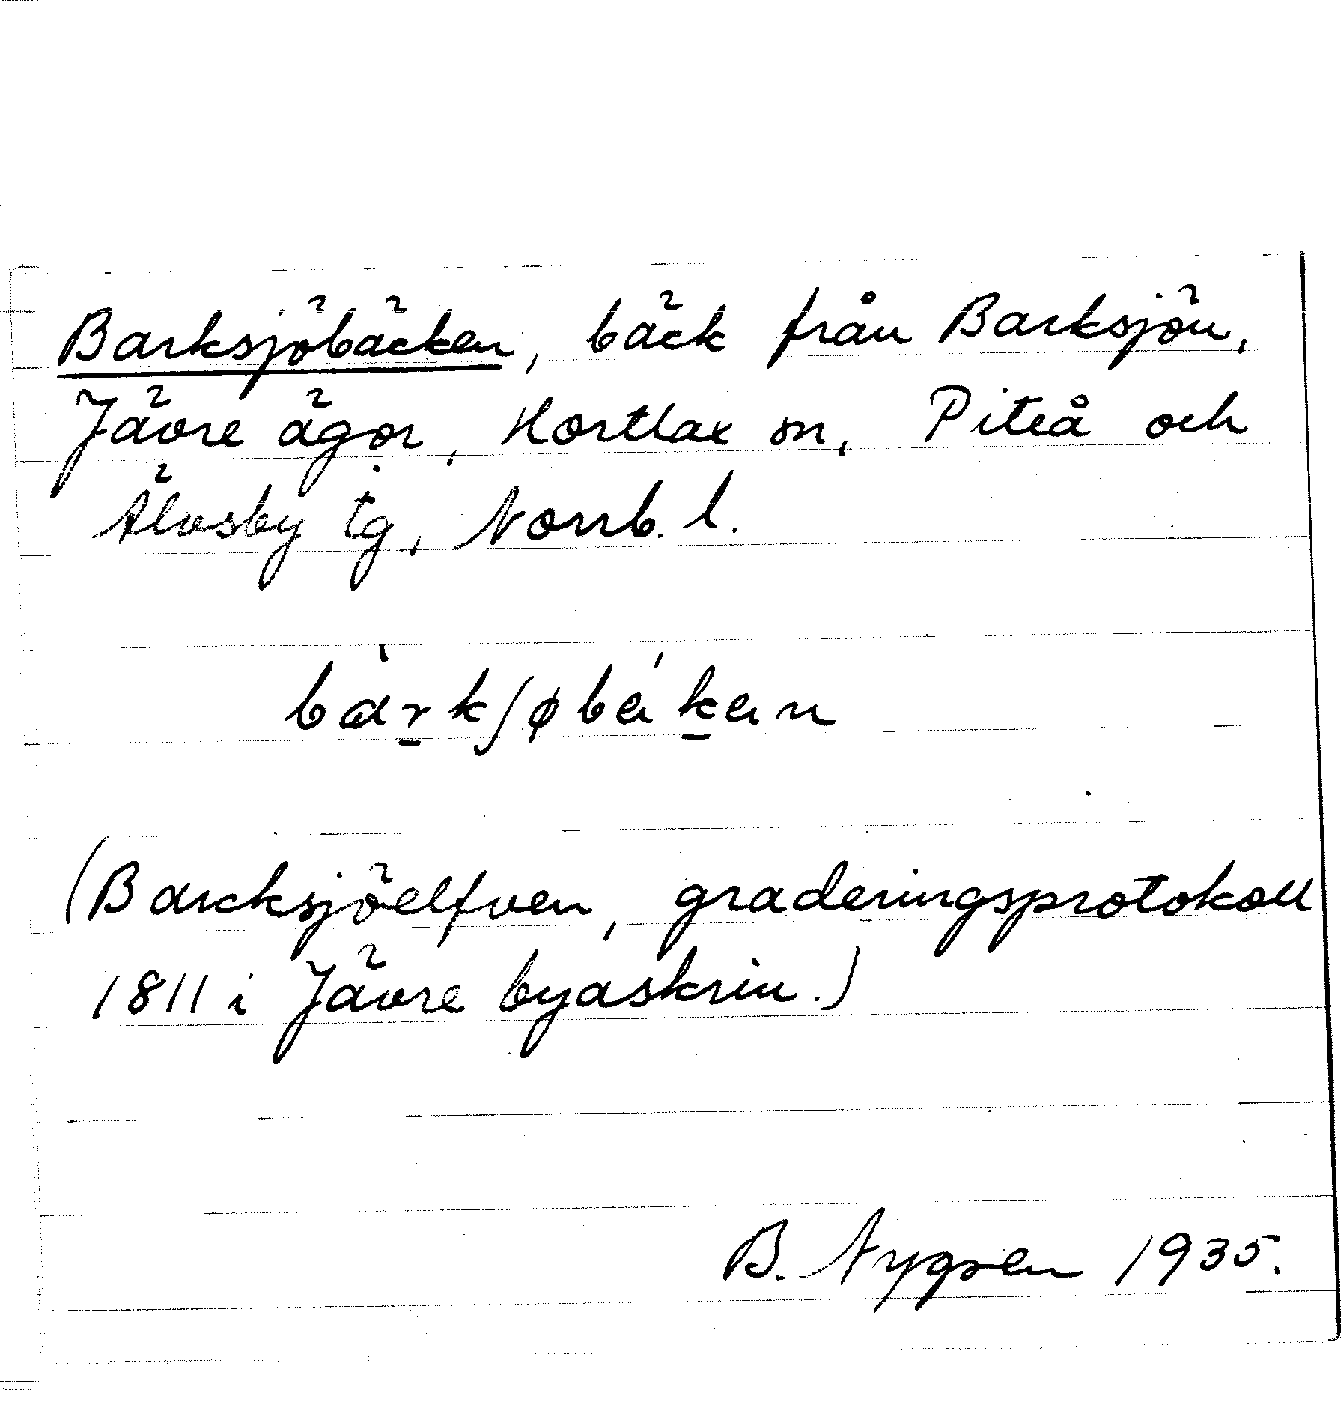 Barksjöbäcken, bäck från Barksjön,
Jävre ägor, Hortlax sn, Piteå och
Älvsby tg, Norrb. l.
bàrkʃøbéken
(Barcksjöelfven, graderingsprotokoll
1811 i Jävre byaskrin.)
B. Nygren 1935.